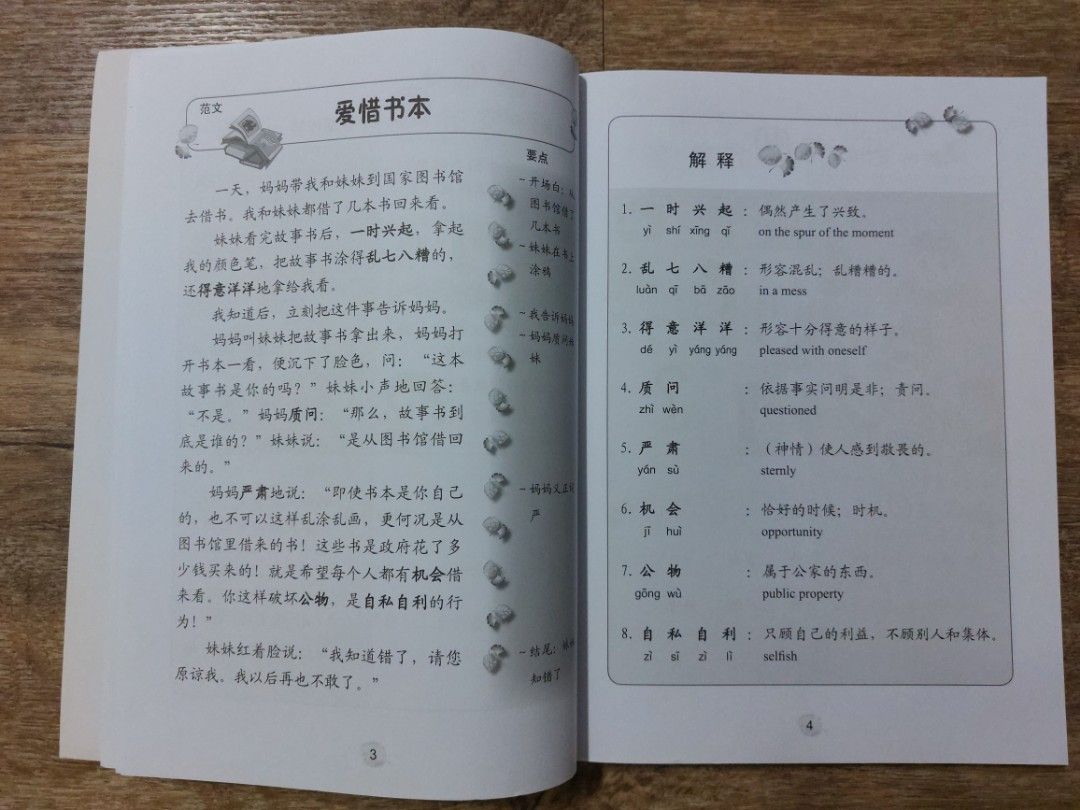 范文
爱惜书本
一天，妈妈带我和妹妹到国家图书馆
去借书。我和妹妹都借了几本书回来看。
妹妹看完故事书后，一时兴起，拿起
我的颜色笔，把故事书涂得乱七八糟的，
还得意洋洋地拿给我看。
我知道后，立刻把这件事告诉妈妈。
妈妈叫妹妹把故事书拿出来，妈妈打
开书本一看，便沉下了脸色，问：“这本
故事书是你的吗？”妹妹小声地回答：
“不是。”妈妈质问：“那么，故事书到
底是谁的？”妹妹说：“是从图书馆借回
来的。”
妈妈严肃地说：“即使书本是你自己
的，也不可以这样乱涂乱画，更何况是从
图书馆里借来的书！这些书是政府花了多
少钱买来的！就是希望每个人都有机会借
来看。你这样破坏公物，是自私自利的行
为！”
妹妹红着脸说：“我知道错了，请您
原谅我。我以后再也不敢了。”
要点
~ 开场白：从
图书馆借了
几本书
~ 妹妹在书上
涂鸦
~ 我告诉妈妈
~ 妈妈质问
妹
~ 妈妈义正
严
~ 结尾：妹
知错了
3
解释
1. 一时兴起：偶然产生了兴致。
yì shí xīng qǐ on the spur of the moment
2. 乱七八糟：形容混乱；乱糟糟的。
luàn qī bā zāo in a mess
3. 得意洋洋：形容十分得意的样子。
dé yì yáng yáng pleased with oneself
4. 质问：依据事实问明是非；责问。
zhì wèn questioned
5. 严肃：（神情）使人感到敬畏的。
yán sù sternly
6. 机会：恰好的时候；时机。
jī huì opportunity
7. 公物：属于公家的东西。
gōng wù public property
8. 自私自利：只顾自己的利益，不顾别人和集体。
zì sī zì lì selfish
4